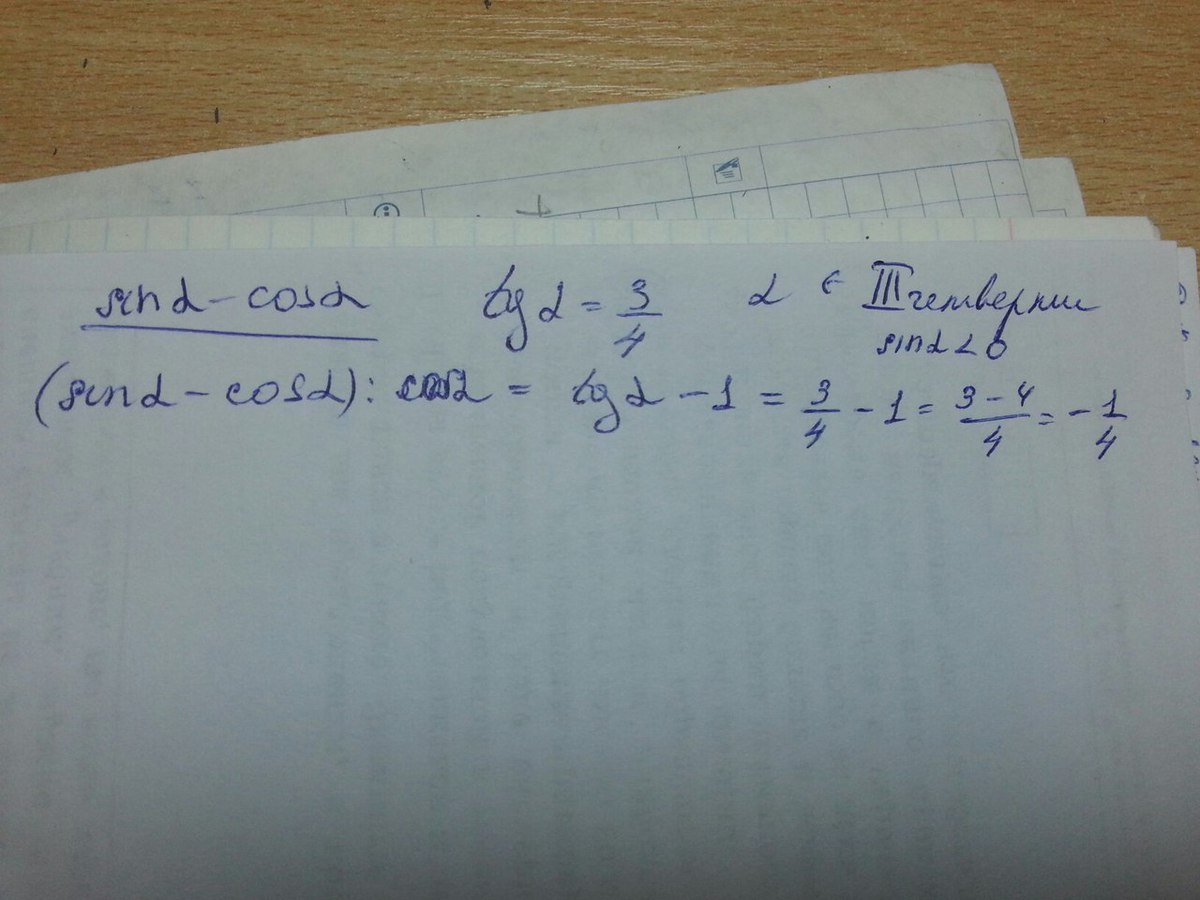 sinα - cosα tgα = 3/4 α ∈ III четверти
sinα < 0
(sinα - cosα) : cosα = tgα - 1 = 3/4 - 1 = (3-4)/4 = -1/4